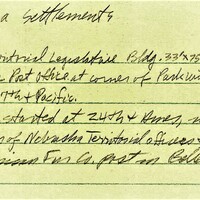 a Settlements
ritorial Legislative Bldg. 33'x75
Post office at corner of Parkwi
7th & Pacific.
started at 24th &
of Nebraska Territorial offices
Fur Co. post in